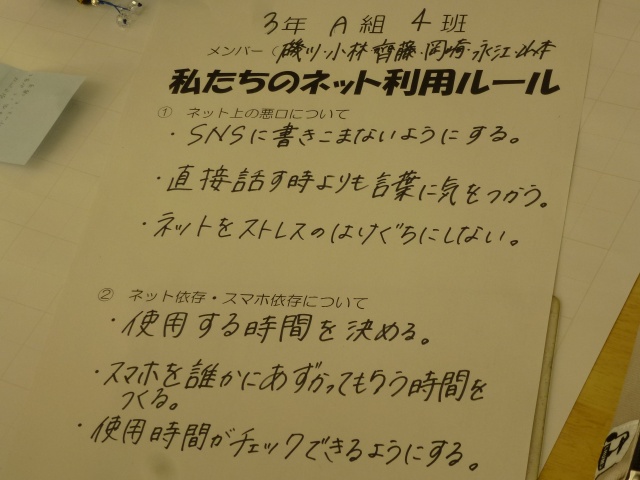 3年 A 組 4 班
メンバー（磯川・小林・齊藤・岡崎・永江・山本
私たちのネット利用ルール
① ネット上の悪口について
・SNSに書きこまないようにする。
・直接話す時よりも言葉に気をつかう。
・ネットをストレスのはけぐちにしない。
② ネット依存・スマホ依存について
・使用する時間を決める。
・スマホを誰かにあずかってもらう時間を
つくる。
・使用時間がチェックできるようにする。